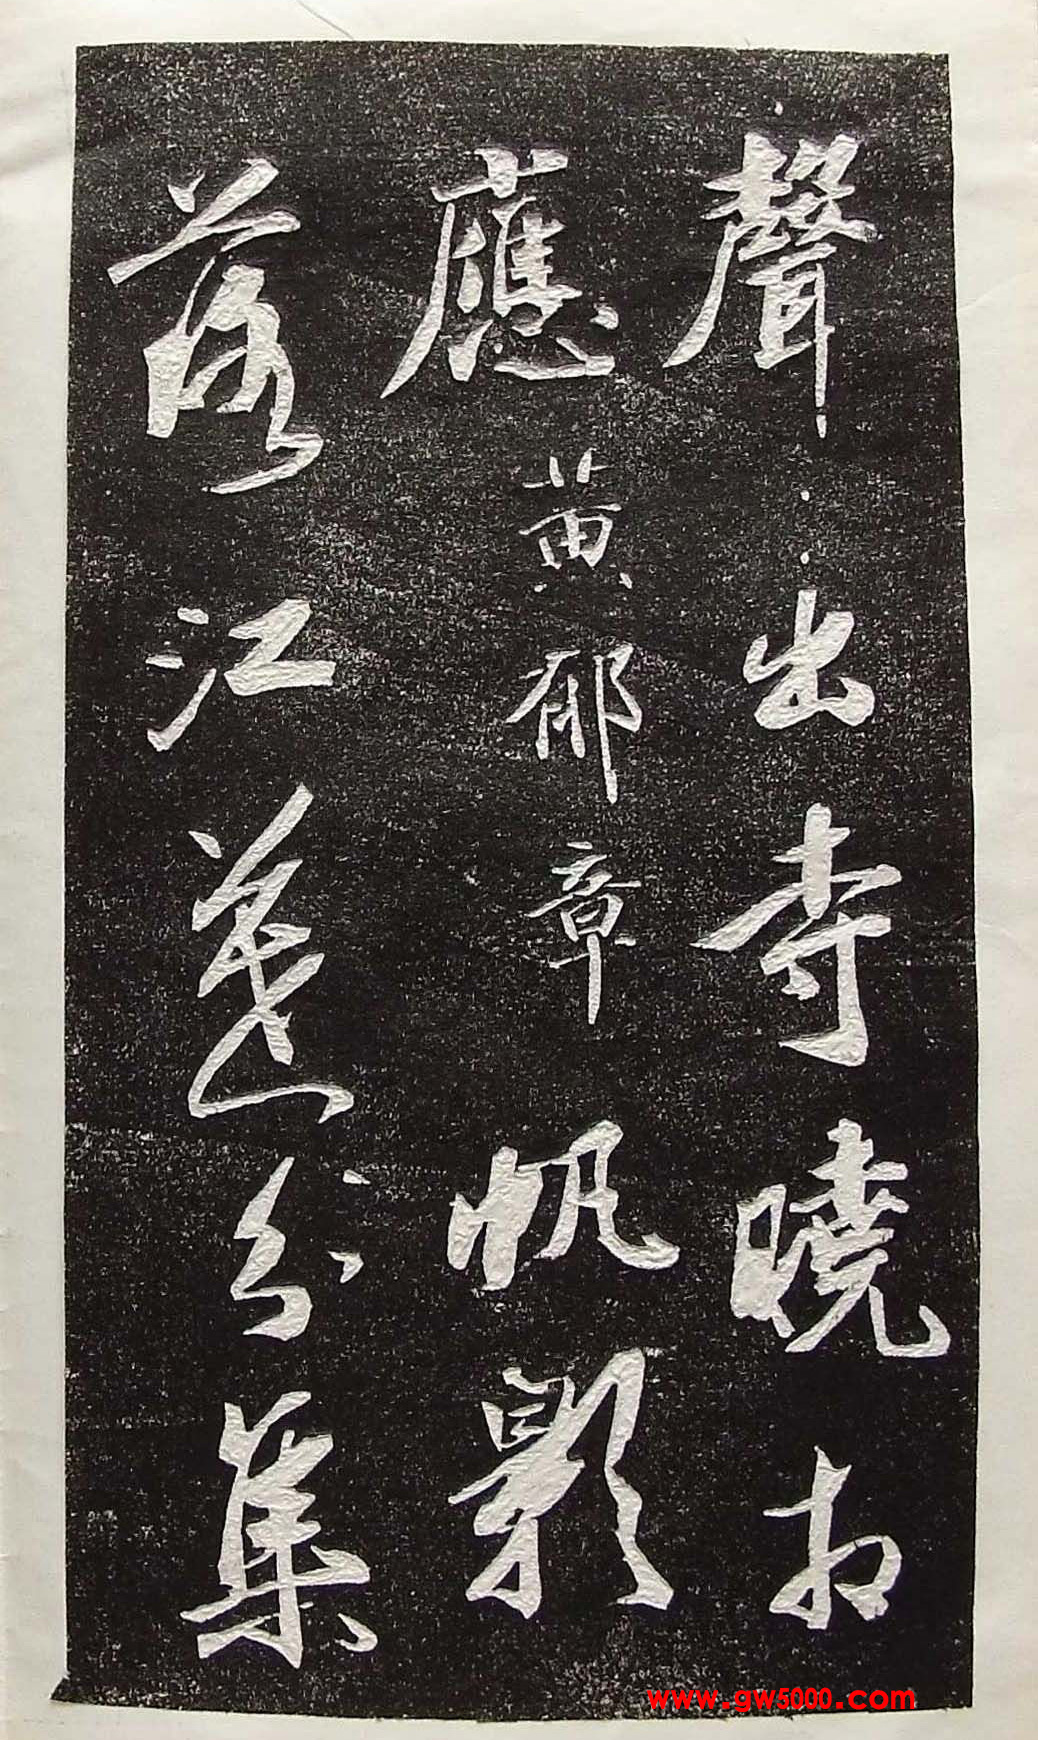 聲出寺曉相
應黃郁章帆影
落江蒼分集
www.gw5000.com